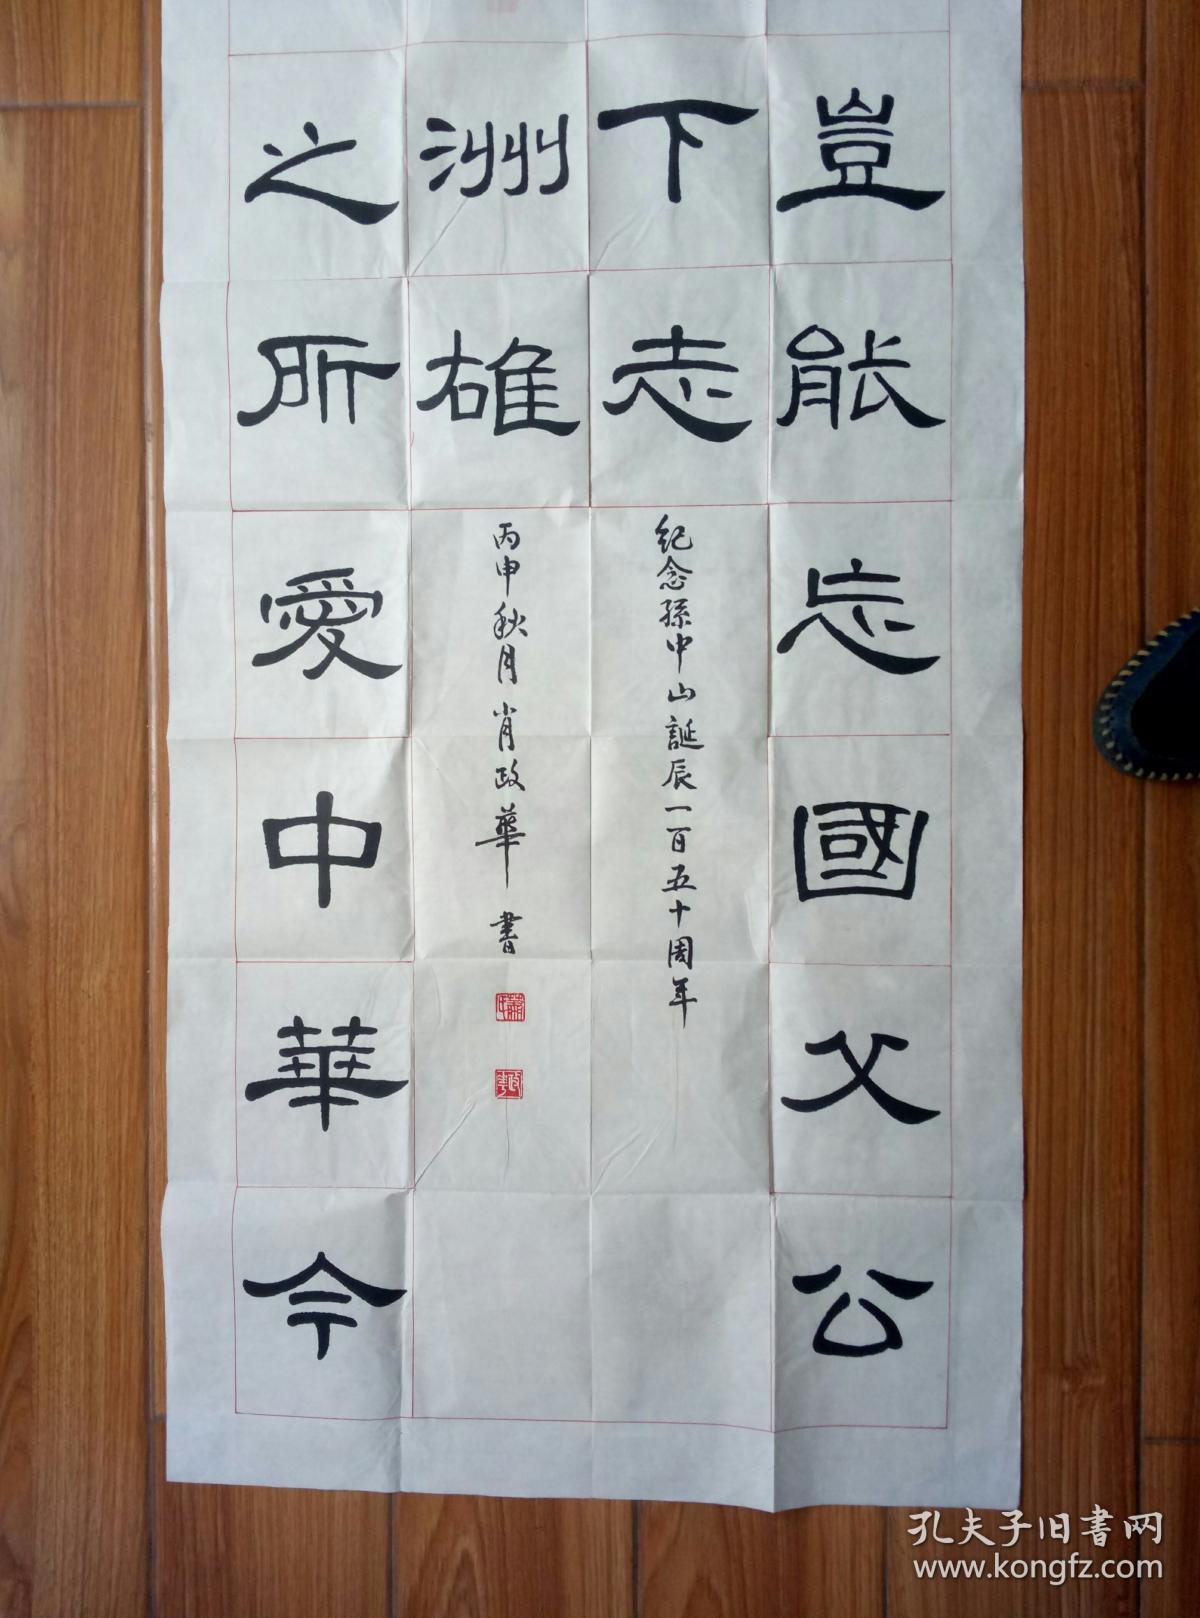 豈能忘國父公
下志
洲雄
之所愛中華今
纪念孫中山誕辰一百五十周年
丙申秋月肖政華書
孔夫子旧書网
www.kongfz.com